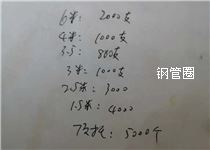 6米: 2000支
4米: 1000支
3.5: 800支
3米: 1000支
2.5米: 3000
1.5米: 4000
顶托: 5000个
钢管圈